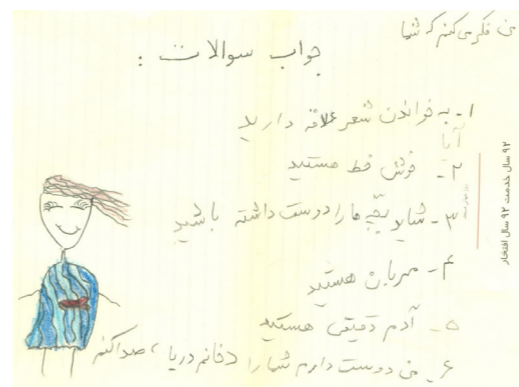 من فکر می کنم که شما
جواب سوالات :
۱- به خواندن شعر علاقه دارید
آیا
۲- خوش خط هستید
۳- شاید بچه ها را دوست داشته باشید
۴- مهربان هستید
۵- آدم دقیقی هستید
۶- من دوست دارم شما را (خانم دریا) صدا کنم
۹۲ سال خدمت ۹۲ سال افتخار